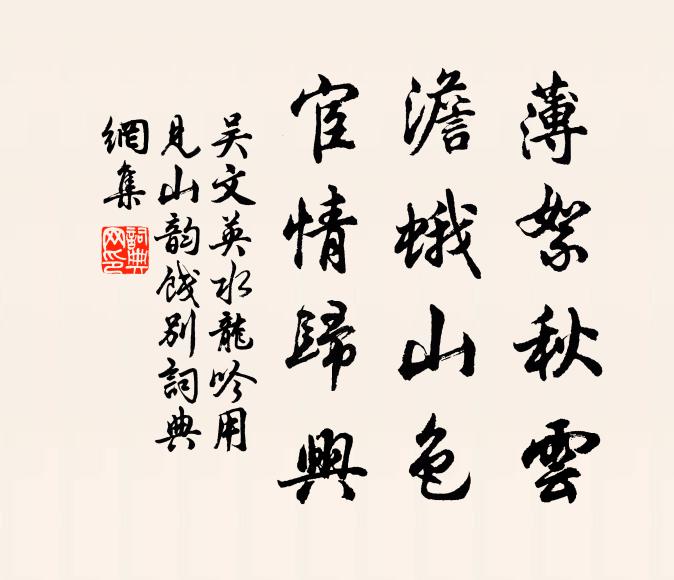 薄絮秋雲
澹蛾山色
宦情歸興
吴文英水龍吟用
見山韵餞别詞典
網集
詞典
网印